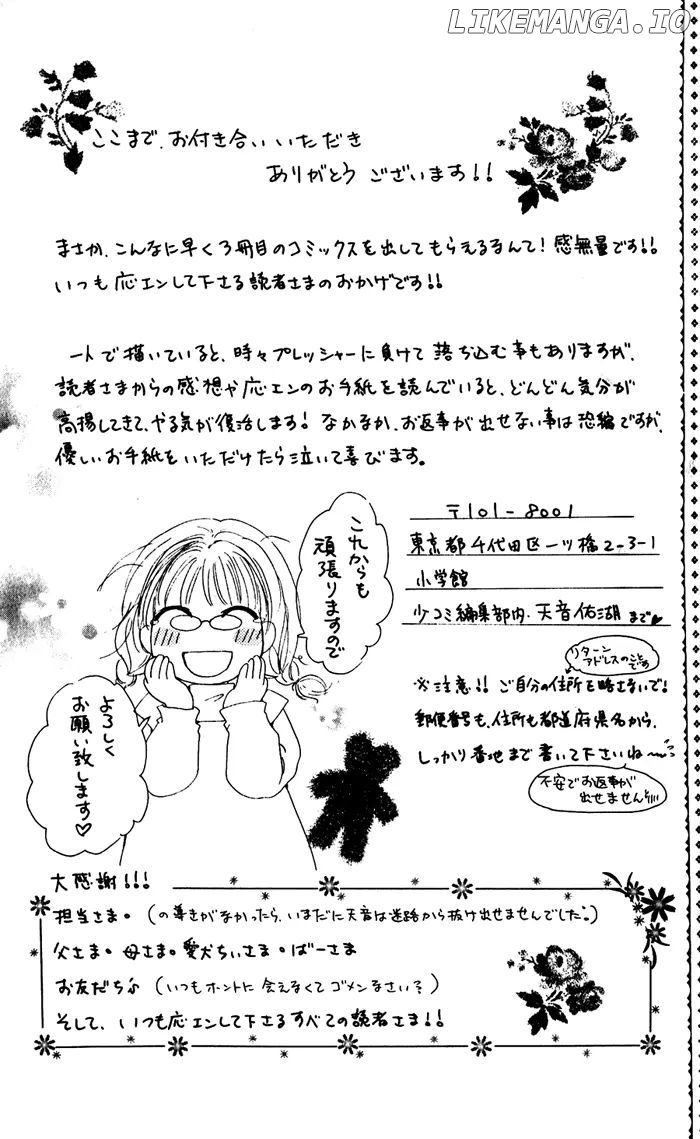 LIKEMANGA.IO
ここまで、お付き合いいただき
ありがとう ございます!!
まさか、こんなに早く3冊目のコミックスを出してもらえるなんて!感無量です!!
いつも応エンして下さる読者さまのおかげです!!
一人で描いていると、時々プレッシャーに負けて落ち込む事もありますが、
読者さまからの感想や応エンのお手紙を読んでいると、どんどん気分が
高揚してきて、やる気が復活します!なかなか、お返事が出せない事は恐縮ですが、
優しいお手紙をいただけたら泣いて喜びます。
これからも
頑張りますので
よろしく
お願い致します♡
〒101-8001
東京都千代田区一ツ橋2-3-1
小学館
少コミ編集部内・天音佑湖まで♡
リターン
アドレスのこと
です
※注意!!ご自分の住所を略さないで!
郵便番号も、住所も都道府県名から、
しっかり番地まで書いて下さいね〜
不安でお返事が
出せません!!!
大感謝!!!
担当さま。(の導きがなかったら、いまだに天音は迷路から抜け出せませんでした。)
父さま。母さま。愛犬ちぃさま。ばーさま
お友だち♪(いつもホントに会えなくてゴメンなさい?)
そして、いつも応エンして下さるすべての読者さま!!